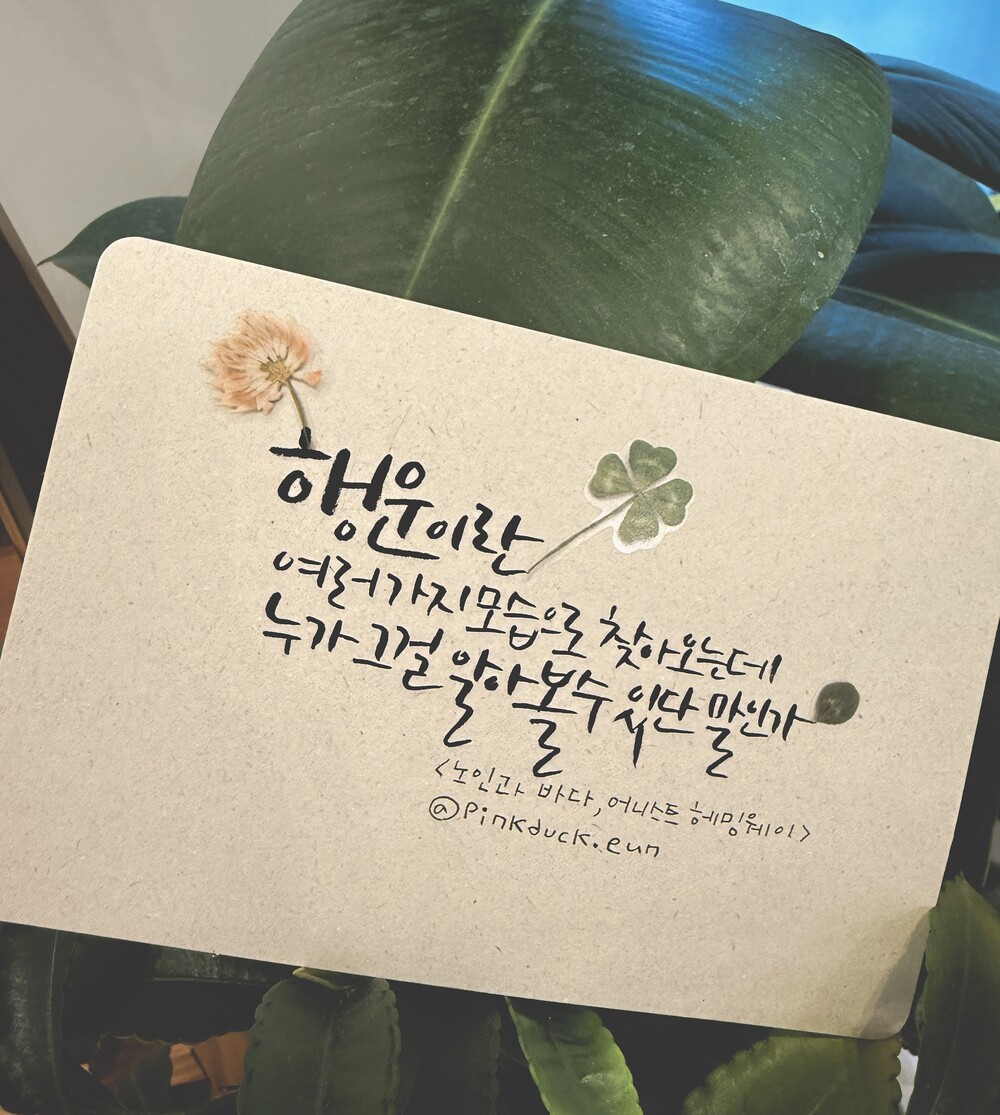 행운이란
여러가지 모습으로 찾아오는데
누가 그걸 알아볼 수 있단 말인가
<노인과 바다, 어니스트 헤밍웨이>
@pinkduck.eun